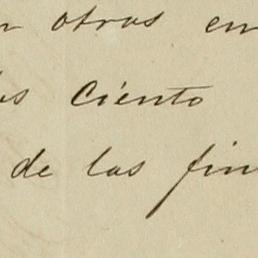 n otros en
los ciento
de las fin